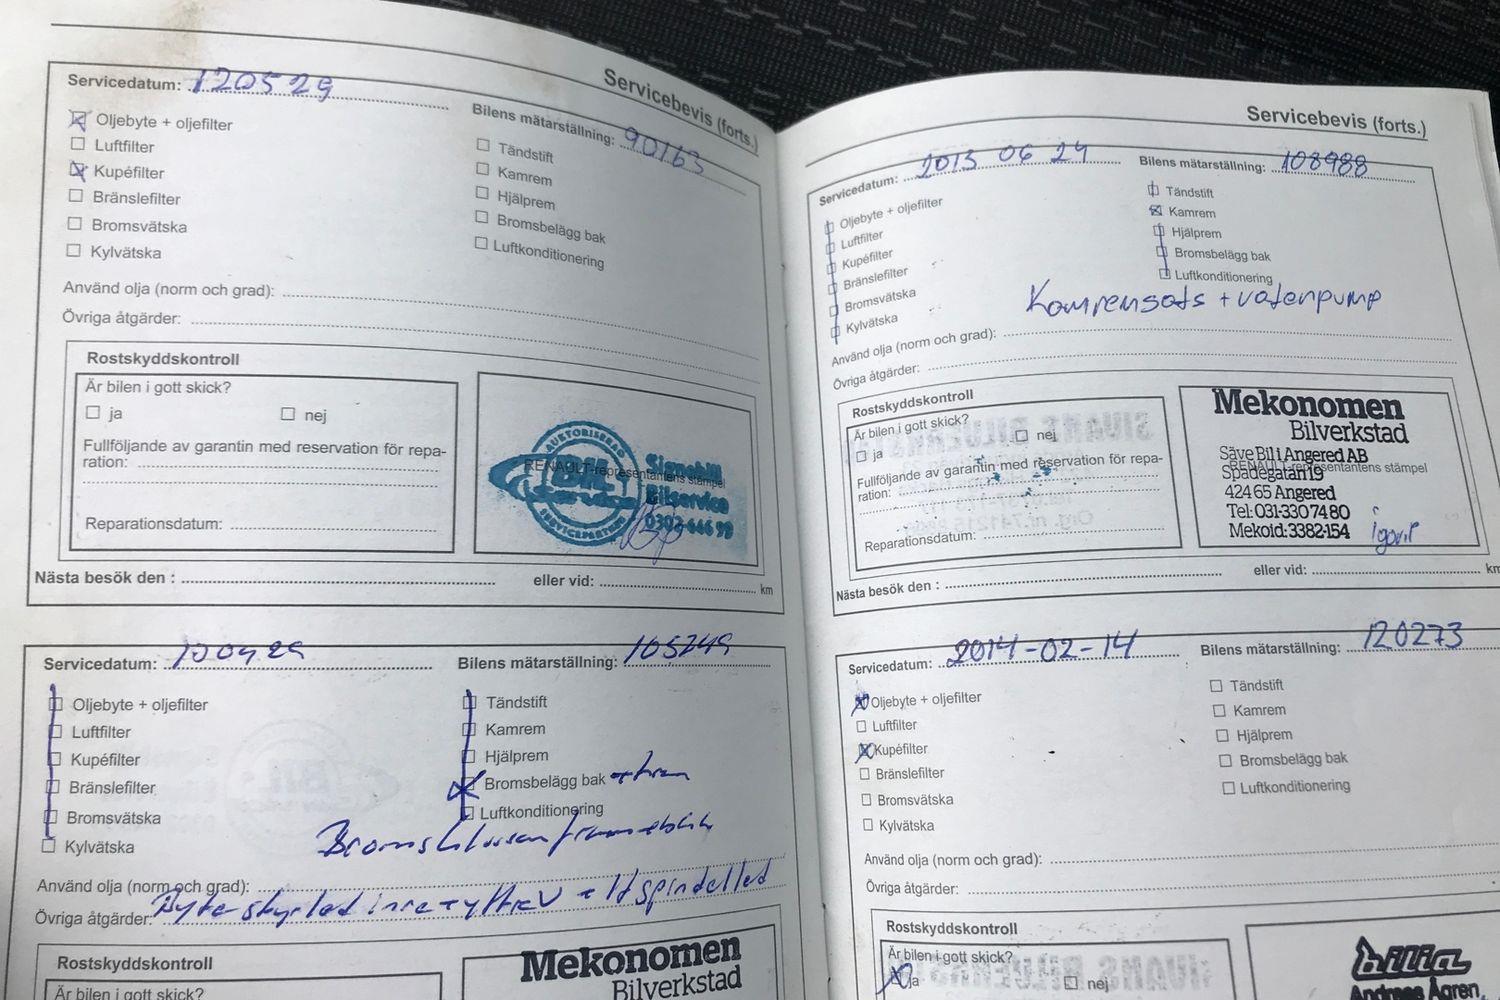 Servicebevis (forts.)
Servicedatum: 120529
Bilens mätarställning: 90163
Oljebyte + oljefilter
Luftfilter
Kupéfilter
Bränslefilter
Bromsvätska
Kylvätska
Tändstift
Kamrem
Hjälprem
Bromsbelägg bak
Luftkonditionering
Använd olja (norm och grad):
Övriga åtgärder:
Rostskyddskontroll
Är bilen i gott skick?
ja nej
Fullföljande av garantin med reservation för repa-
ration:
Reparationsdatum:
AUKTORISERAD
BIL
SERVICEPARTNER
RENAULT-representantens stämpel
Signebill
Bilservice
0303-646 99
Nästa besök den : eller vid: km
Servicedatum:
Bilens mätarställning: 105249
Oljebyte + oljefilter
Luftfilter
Kupéfilter
Bränslefilter
Bromsvätska
Kylvätska
Tändstift
Kamrem
Hjälprem
Bromsbelägg bak
Luftkonditionering
Använd olja (norm och grad):
Övriga åtgärder:
Rostskyddskontroll
Är bilen i gott skick?
Mekonomen
Bilverkstad
Servicebevis (forts.)
Servicedatum: 2013 06 24
Bilens mätarställning: 108988
Oljebyte + oljefilter
Luftfilter
Kupéfilter
Bränslefilter
Bromsvätska
Kylvätska
Tändstift
Kamrem
Hjälprem
Bromsbelägg bak
Luftkonditionering
Kamremsats + vatenpump
Använd olja (norm och grad):
Övriga åtgärder:
Rostskyddskontroll
Är bilen i gott skick?
ja nej
Fullföljande av garantin med reservation för repa-
ration:
Reparationsdatum:
Mekonomen
Bilverkstad
Säve Bil i Angered AB
RENAULT-representantens stämpel
Spadegatan 19
424 65 Angered
Tel: 031-330 74 80
Mekoid: 3382-154
Nästa besök den : eller vid: km
Servicedatum: 2014-02-14
Bilens mätarställning: 120273
Oljebyte + oljefilter
Luftfilter
Kupéfilter
Bränslefilter
Bromsvätska
Kylvätska
Tändstift
Kamrem
Hjälprem
Bromsbelägg bak
Luftkonditionering
Använd olja (norm och grad):
Övriga åtgärder:
Rostskyddskontroll
Är bilen i gott skick?
ja nej
bilia
Andreas Ågren,